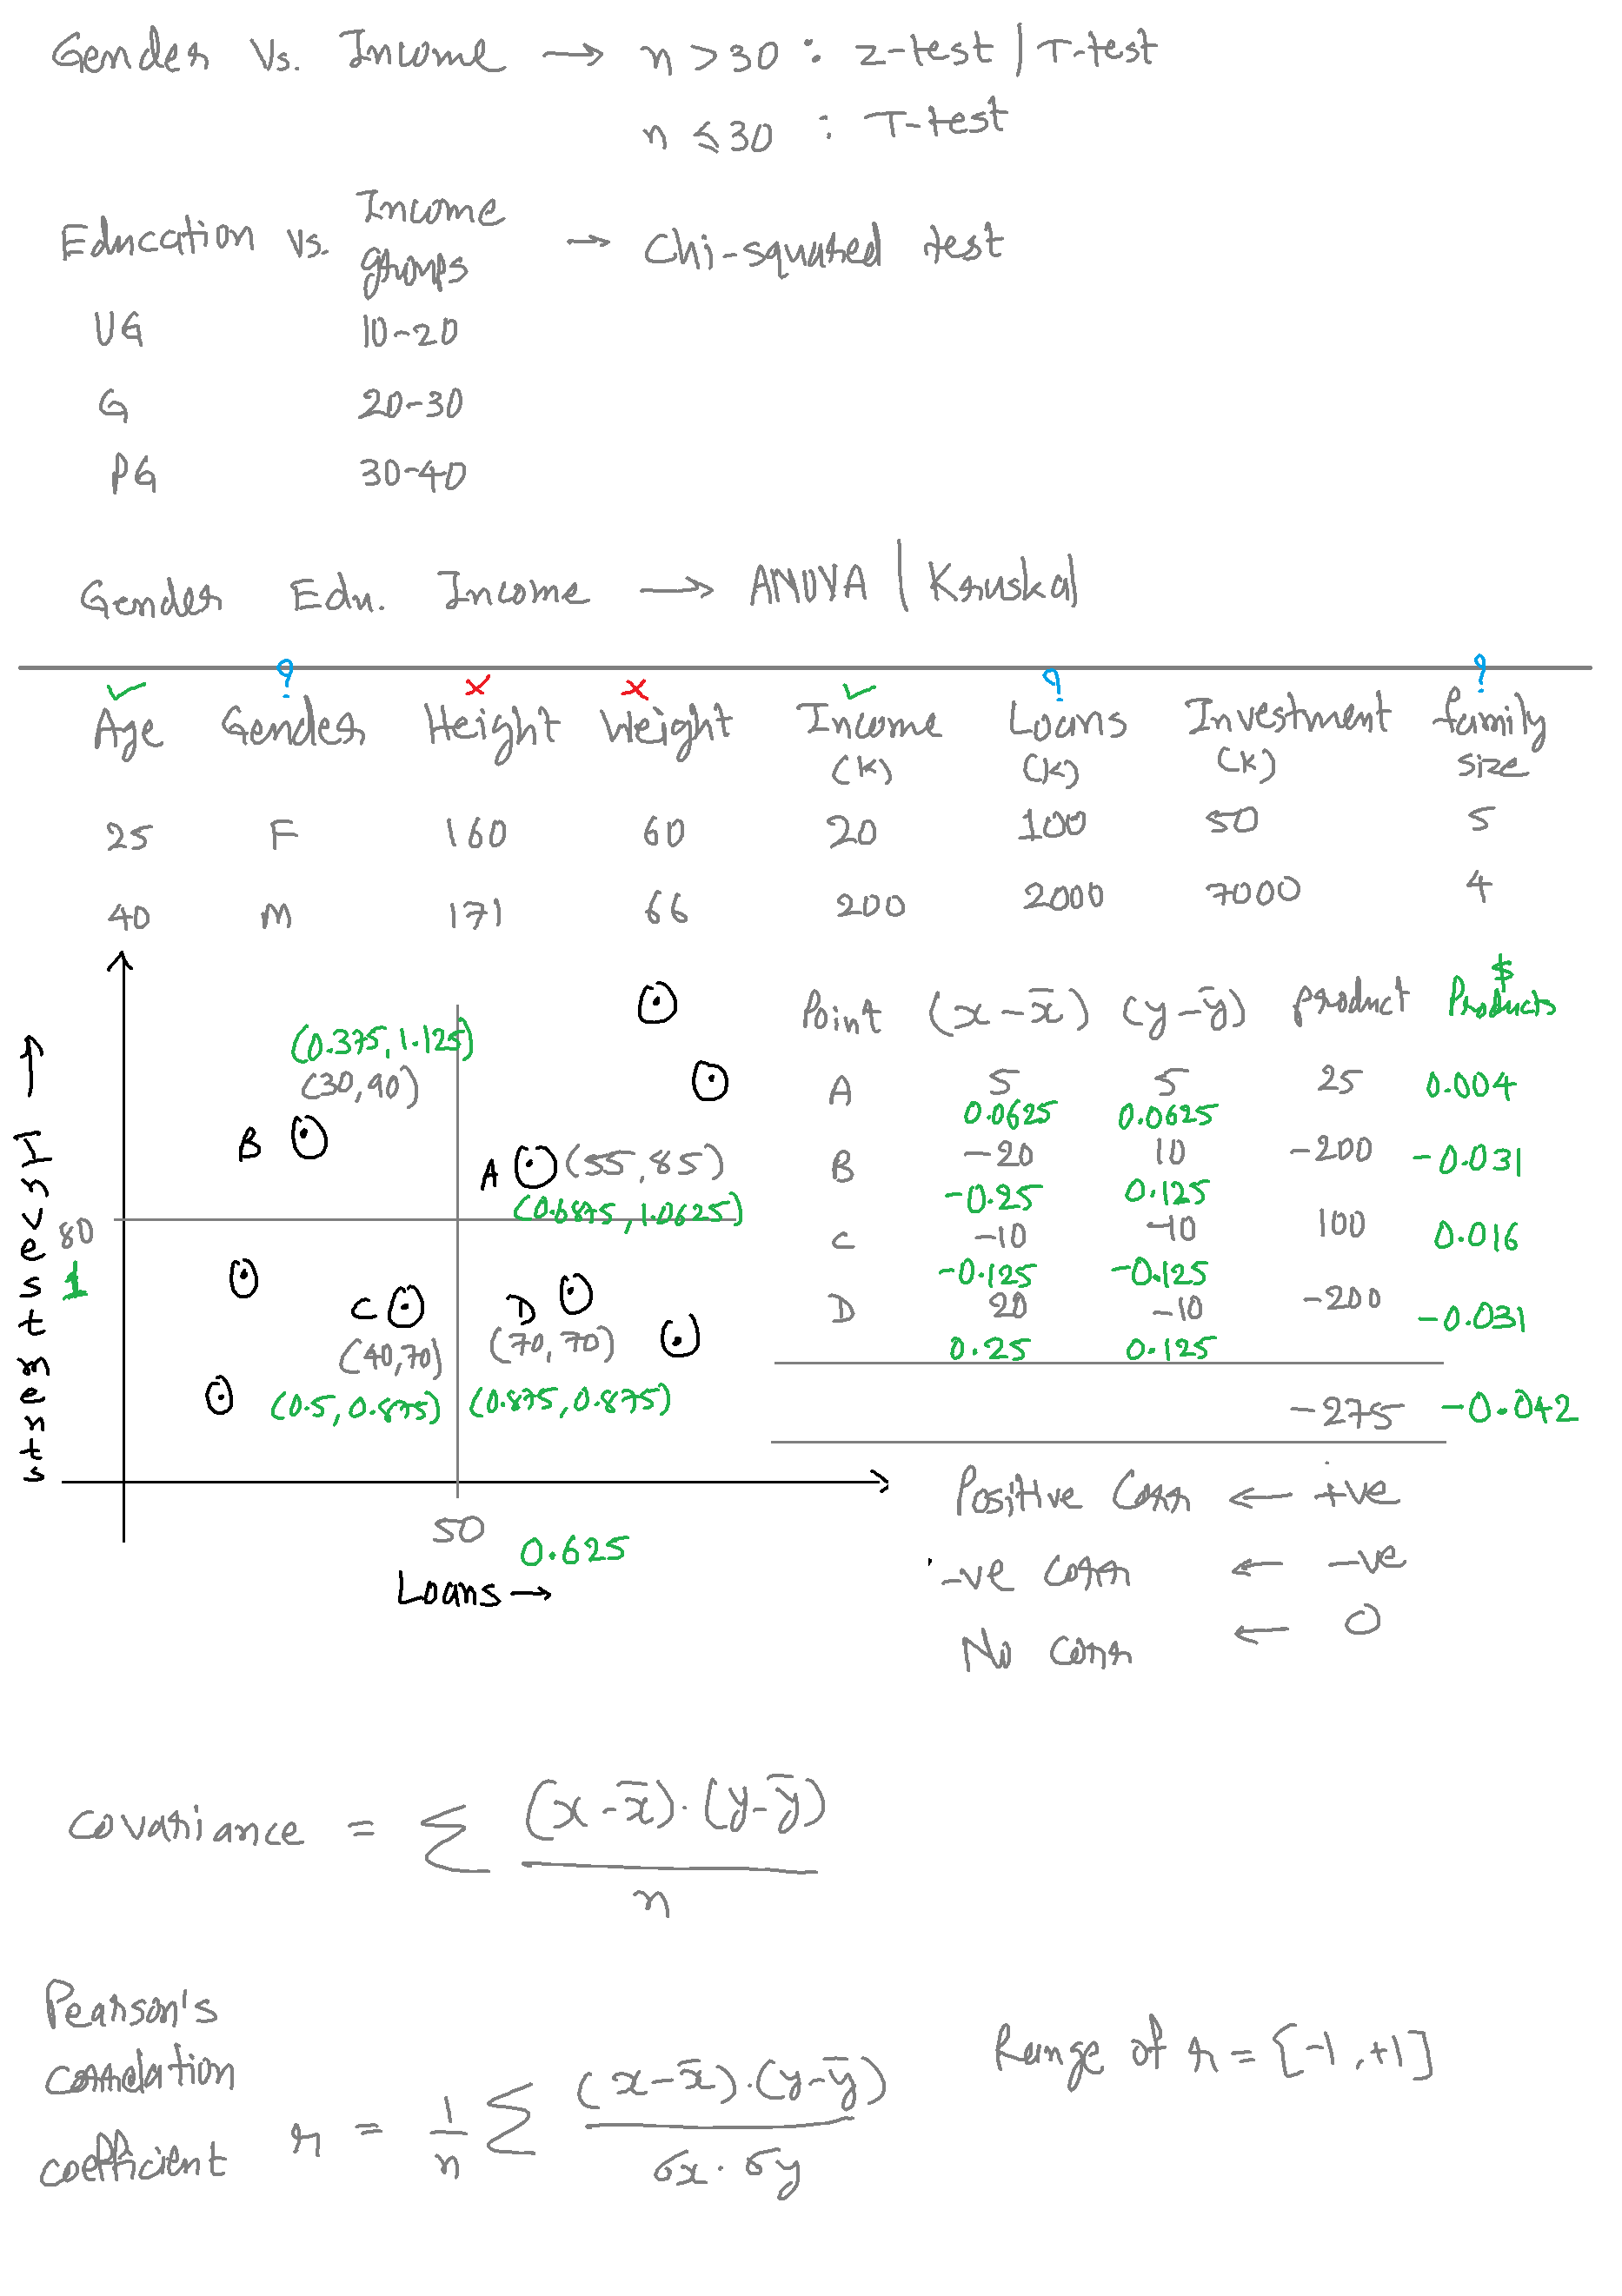 Gender Vs. Income → n > 30 : z-test | T-test
n ≤ 30 : T-test
Education vs. Income groups → Chi-squared test
UG 10-20
G 20-30
PG 30-40
Gender Edu. Income → ANOVA | Kruskal
✓ ? × × ✓ ? ?
Age Gender Height Weight Income (K) Loans (K) Investment (K) family size
25 F 160 60 20 100 50 5
40 M 171 66 200 2000 7000 4
Investments →
80
1
(0.375, 1.125)
(30, 90)
B
A (55, 85)
(0.6875, 1.0625)
C
(40, 70)
(0.5, 0.875)
D
(70, 70)
(0.875, 0.875)
50
0.625
Loans →
Point (x - x̄) (y - ȳ) product $ Products
A 5 5 25 0.004
0.0625 0.0625
B -20 10 -200 -0.031
-0.25 0.125
C -10 -10 100 0.016
-0.125 -0.125
D 20 -10 -200 -0.031
0.25 0.125
-275 -0.042
Positive Corr ← +ve
-ve corr ← -ve
No corr ← 0
covariance = Σ (x - x̄) · (y - ȳ) / n
Pearson's
correlation
coefficient r = 1/n Σ (x - x̄) · (y - ȳ) / σx · σy
Range of r = [-1, +1]